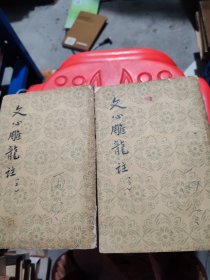 文心雕龍注
文心雕龍注